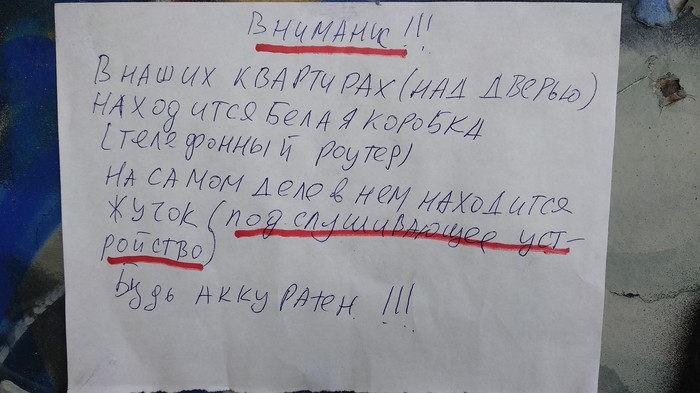 Внимание!!!
В наших квартирах (над дверью)
находится белая коробка
(телефонный роутер)
На самом деле в нем находится
жучок (подслушивающее уст-
ройство)
Будь аккуратен!!!